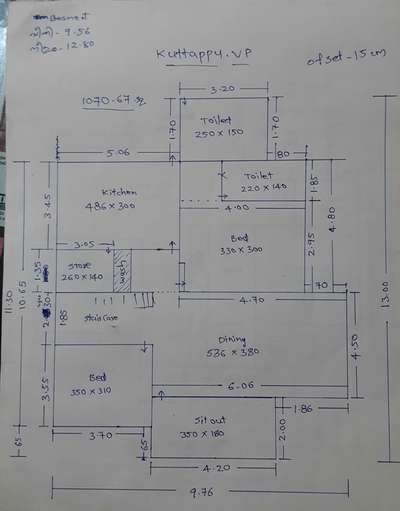 Basment
വീതി - 9.56
നീളം - 12.80
Kuttappy.VP
ofset - 15 cm
1070-67
3.20
1.70
Toilet
250 x 150
1.70
5.06
80
Kitchen
486 x 300
Toilet
220 x 140
1.85
3.45
4.00
4.80
3.05
Bed
330 x 300
2.95
Store
260 x 140
wash
1.35
70
4.70
11.30
10.65
13.00
1.85
StairCase
Dining
536 x 380
4.50
3.55
Bed
350 x 310
6.06
1.86
Sit out
350 x 180
2.00
65
3.70
65
4.20
9.76